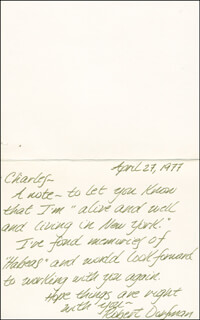 April 27, 1977
Charles-
A note - to let you know
that I'm "alive and well
and living in New York."
I've fond memories of
"Habeas" and would look forward
to working with you again.
Hope things are right
with you-
Robert